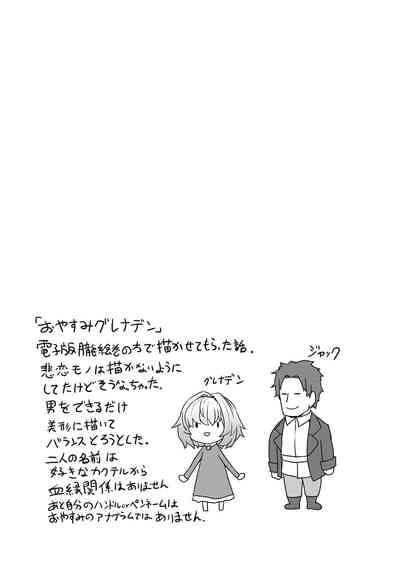 「おやすみグレナデン」
電子版朧絵巻の方で描かせてもらった話.
悲恋モノは描かないように
してたけどそうなっちゃった.
男をできるだけ
美形に描いて
バランスとろうとした.
二人の名前は
好きなカクテルから
血縁関係はありません
あと自分のハンドルorペンネームは
おやすみのアナグラムではありません.
グレナデン
ジャック